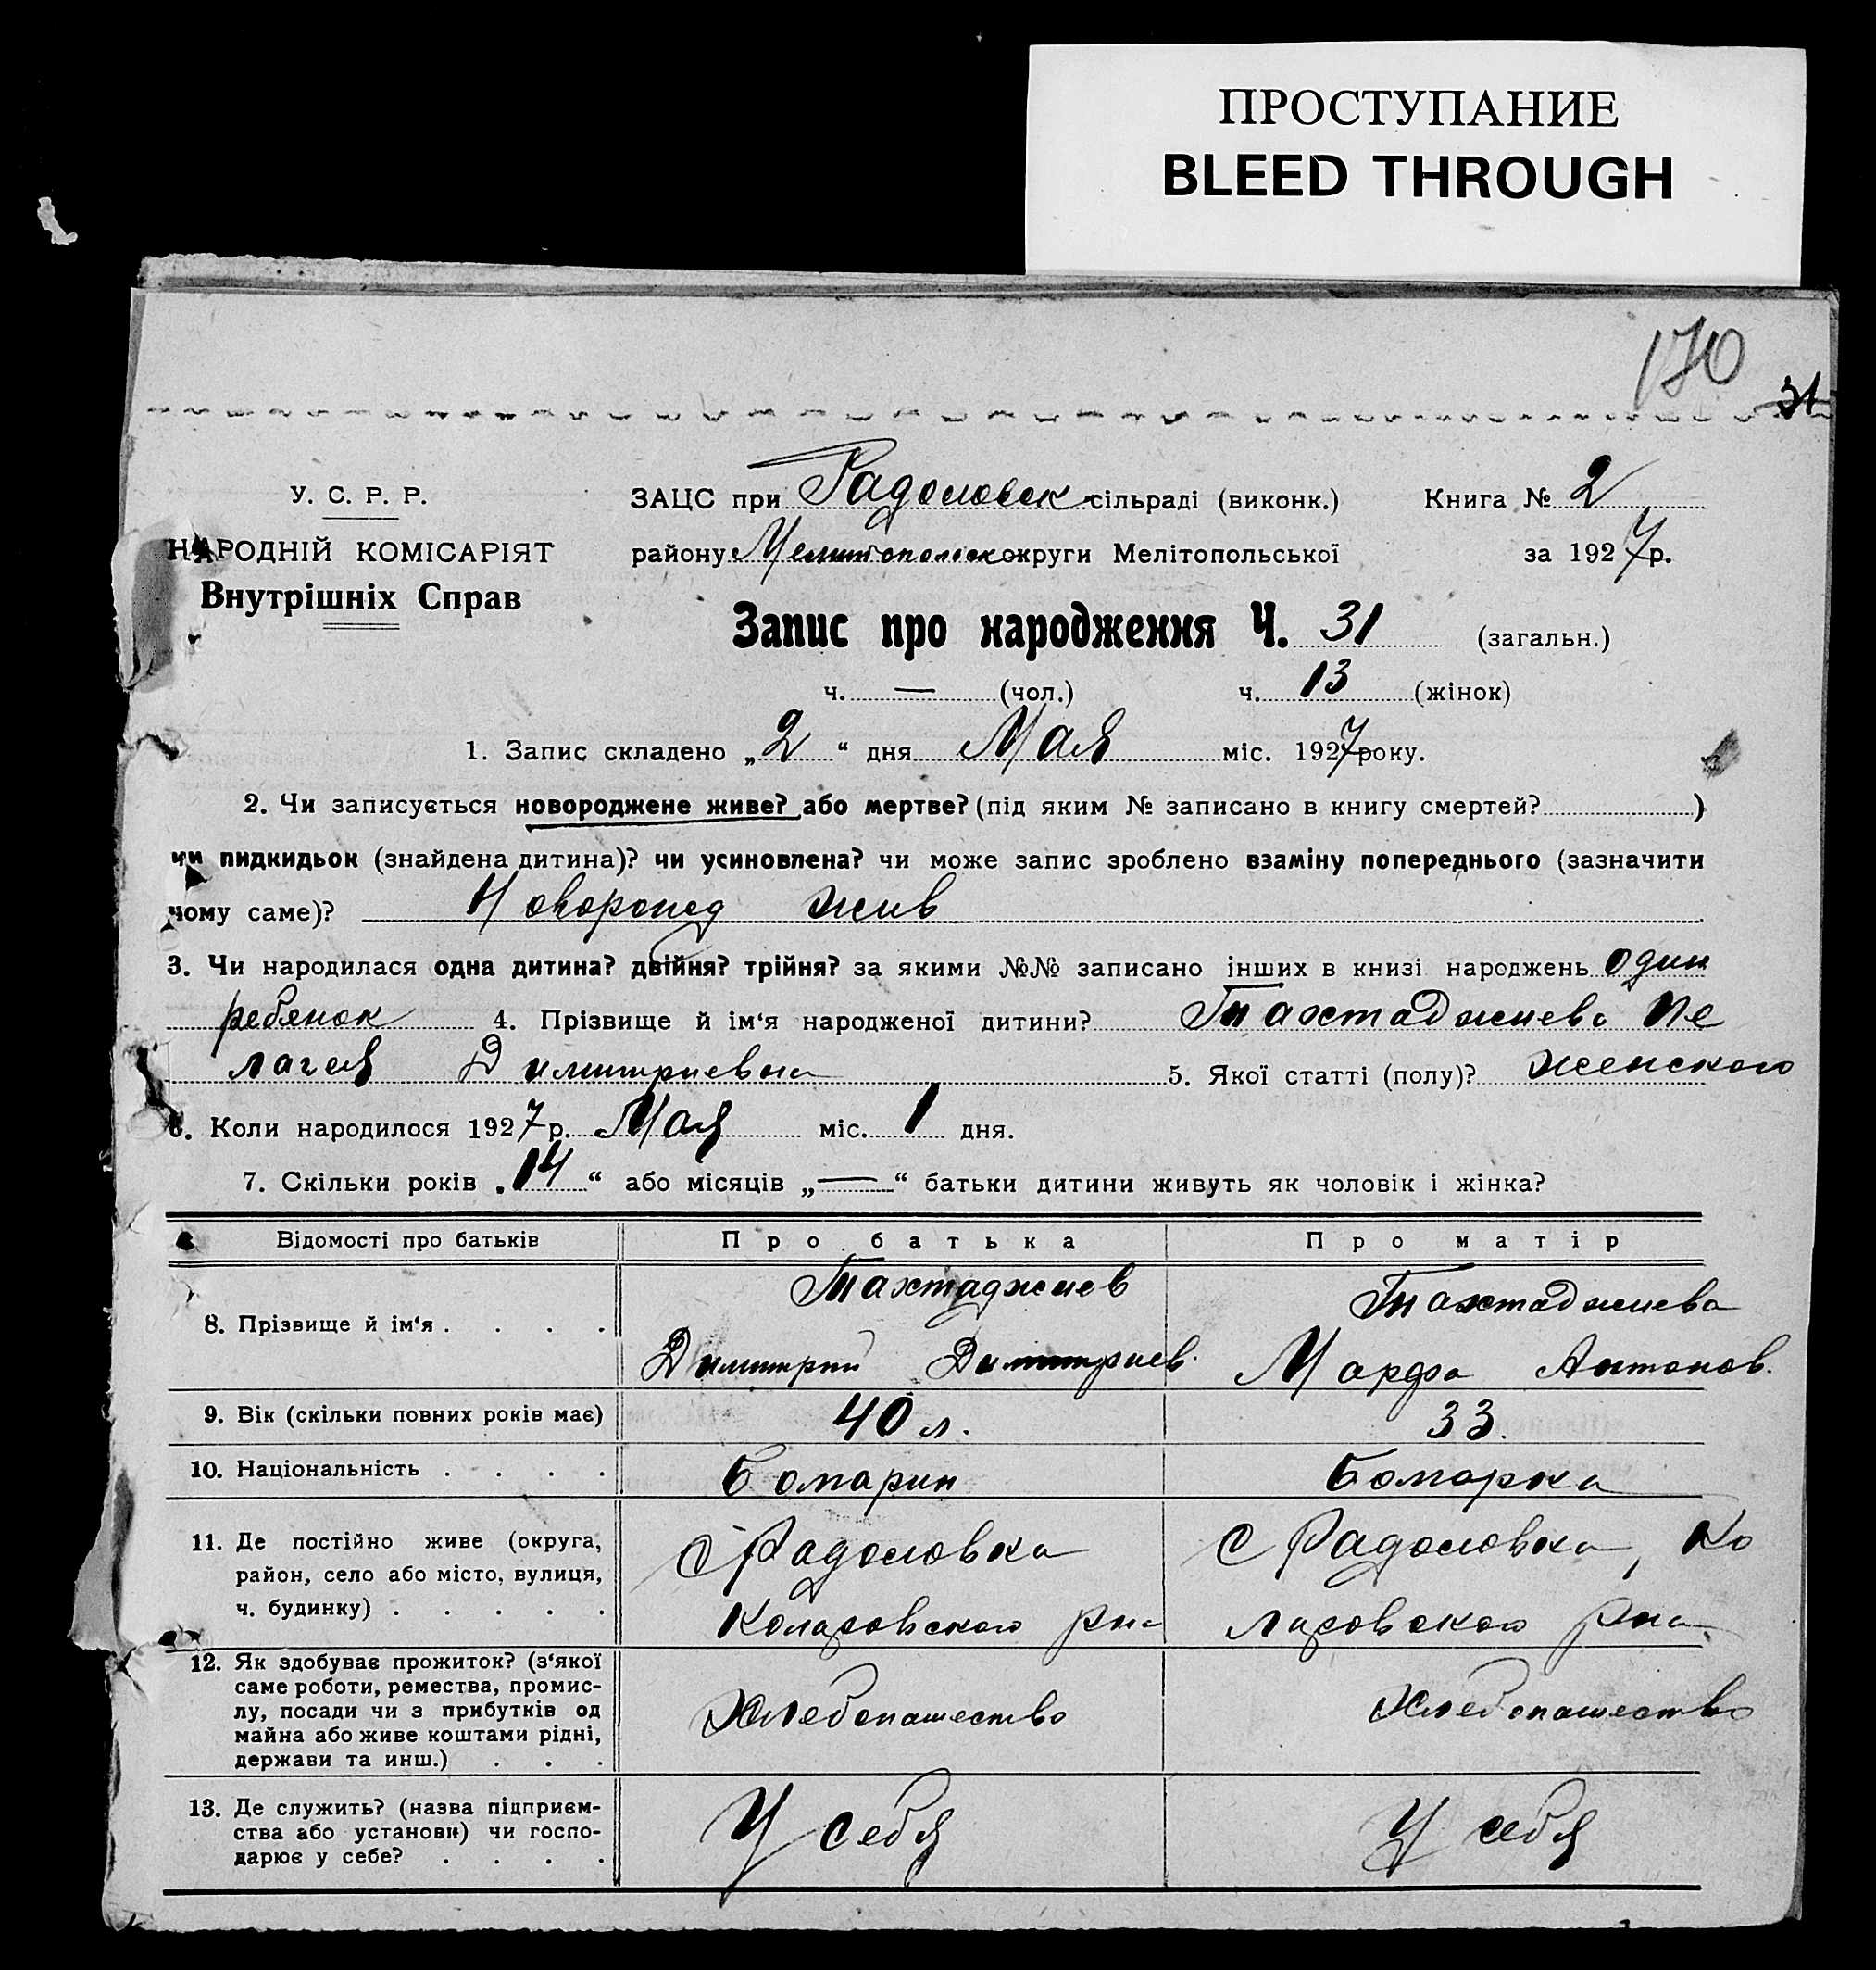 ПРОСТУПАНИЕ
BLEED THROUGH
170
31
У. С. Р. Р.
НАРОДНІЙ КОМІСАРІЯТ
Внутрішніх Справ
ЗАЦС при Радоловск сільраді (виконк.) Книга № 2
району Мелитопольск округи Мелітопольської за 1927 р.
Запис про народження Ч. 31 (загальн.)
ч. — (чол.) ч. 13 (жінок)
1. Запис складено „2“ дня Мая міс. 1927 року.
2. Чи записується новороджене живе? або мертве? (під яким № записано в книгу смертей? )
чи пидкидьок (знайдена дитина)? чи усиновлена? чи може запис зроблено взаміну попереднього (зазначити
чому саме)? Новорожд жив
3. Чи народилася одна дитина? двійня? трійня? за якими №№ записано інших в книзі народжень один
ребенок 4. Прізвище й ім'я народженої дитини? Тахтаджиева Пе
лагея Димитриевна 5. Якої статті (полу)? женского
6. Коли народилося 1927 р. Мая міс. 1 дня.
7. Скільки років „14“ або місяців „—“ батьки дитини живуть як чоловік і жінка?
Відомості про батьків Про батька Про матір
8. Прізвище й ім'я . . . . Тахтаджиев Димитрий Димитриев. Тахтаджиева Марфа Антонов.
9. Вік (скільки повних років має) 40 л. 33.
10. Національність . . . . Болгарин Болгарка
11. Де постійно живе (округа,
район, село або місто, вулиця,
ч. будинку) . . . . . С Радоловка Коларовского рна С Радоловка, Ко ларовского рна
12. Як здобуває прожиток? (з'якої
саме роботи, ремества, промис-
лу, посади чи з прибутків од
майна або живе коштами рідні,
держави та инш.) . . . Хлебопашество Хлебопашество
13. Де служить? (назва підприєм-
ства або установи) чи госпо-
дарює у себе? . . . . У себя У себя